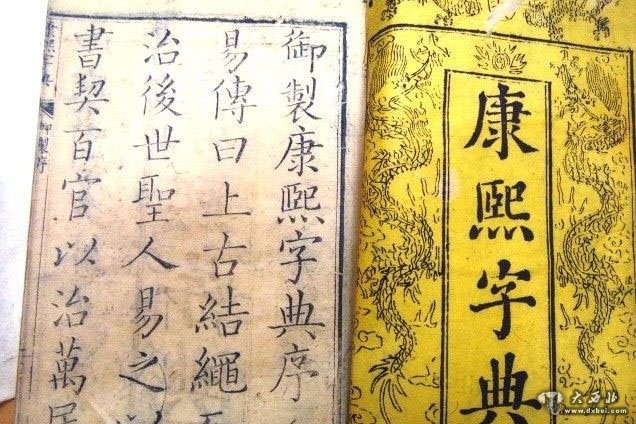 御製康熙字典序
易傳曰上古結繩
治後世聖人易之
書契百官以治萬民
康熙字典
御製序
康熙字典
大西北
www.dxbei.com